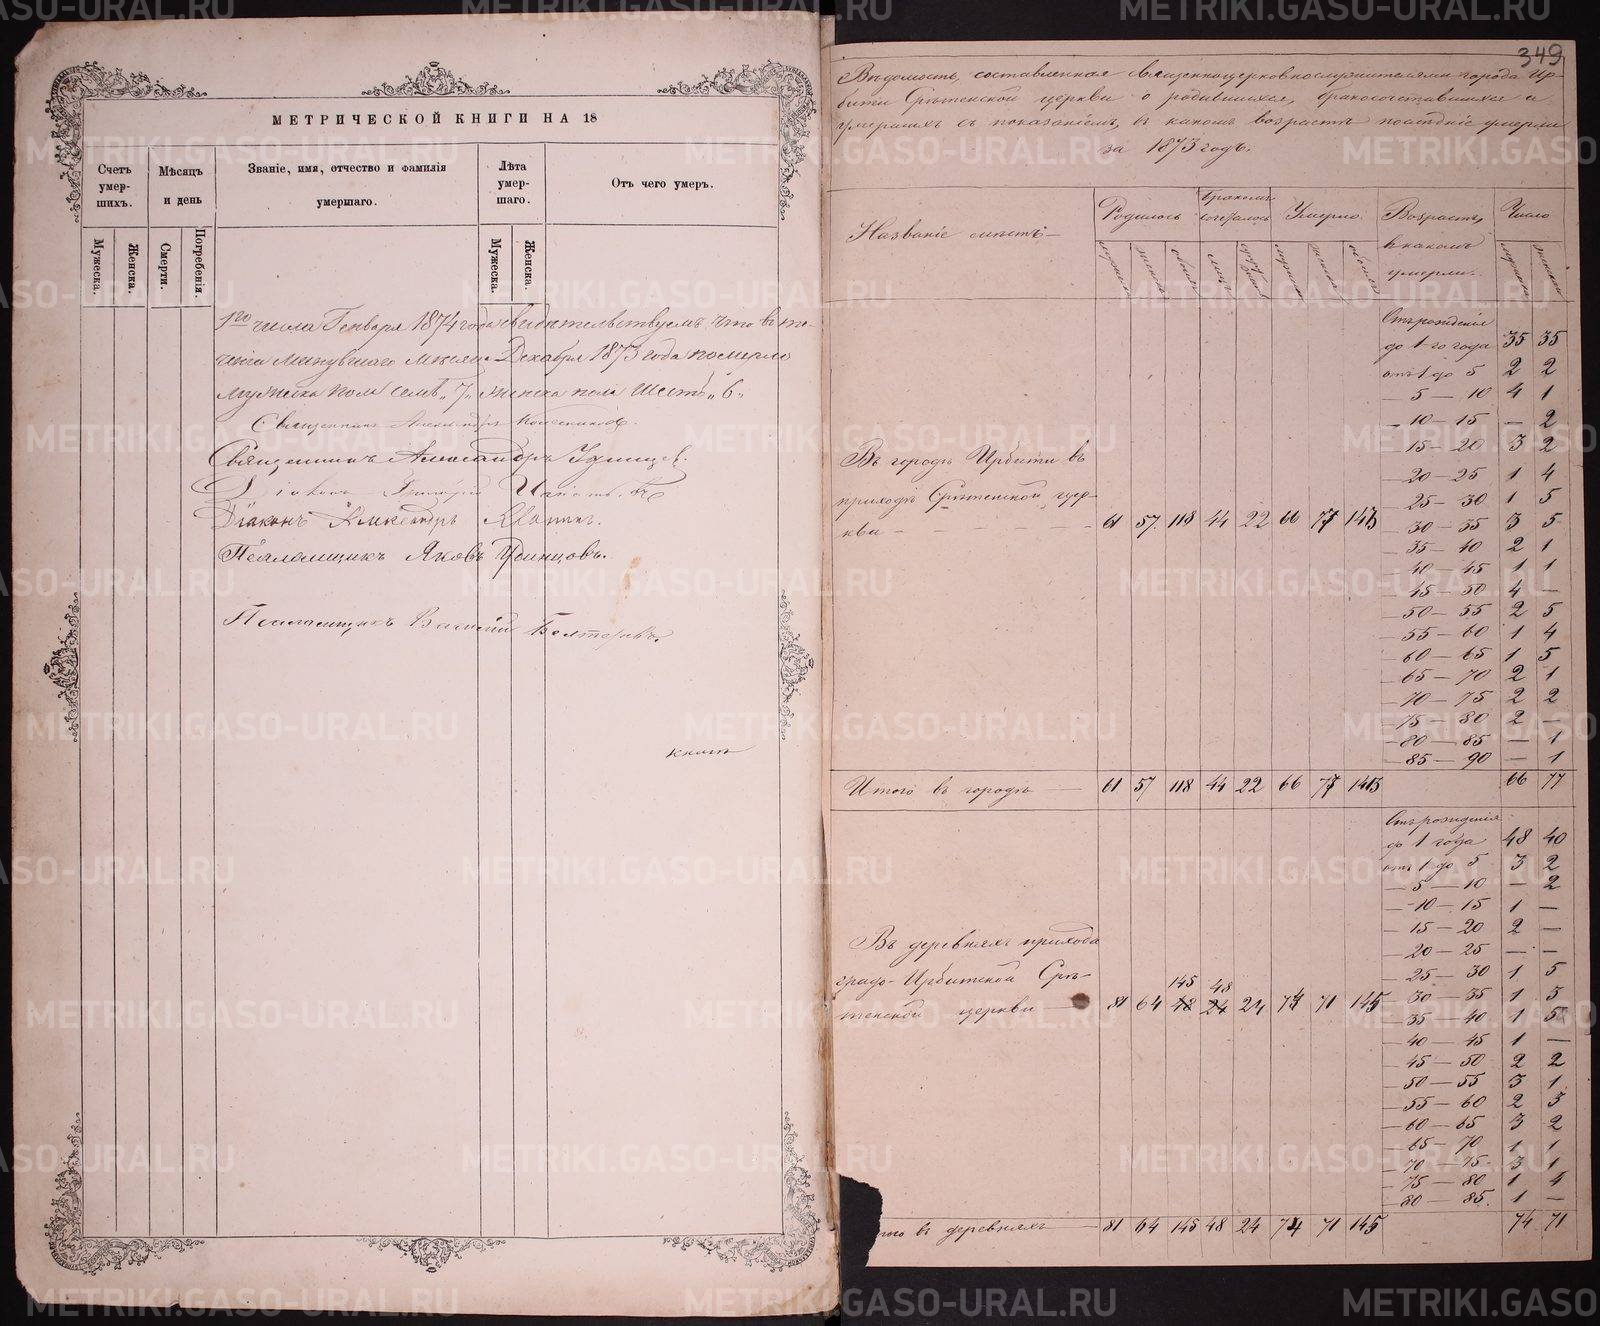 МЕТРИЧЕСКОЙ КНИГИ НА 18
Счетъ умер-шихъ.
Мѣсяцъ и день
Званіе, имя, отчество и фамилія умершаго.
Лѣта умер-шаго.
Отъ чего умеръ.
Мужеска.
Женска.
Смерти.
Погребенія.
Мужеска.
Женска.
1го числа Генваря 1874 года свидѣтельствуемъ что въ те-
ченіи минувшаго мѣсяца Декабря 1873 года померло
мужеска пола семь „7„ женска пола шесть „6„
Священникъ Александръ
Священникъ Александръ Удинцев.
Діаконъ Григорій
Діаконъ Александръ
Псаломщикъ Яковъ Удинцовъ.
Псаломщикъ Василій
книгѣ
349
Вѣдомость, составленная священноцерковнослужителями города Ир-
бити Срѣтенской церкви о родившихся, бракосочетавшихся и
умершихъ съ показаніемъ, въ какомъ возрастѣ послѣдніе умерли
за 1873 годъ.
Названіе мѣстъ
Родилось
Бракомъ сочеталось
Умерло.
Возрастъ, въ какомъ умерли.
Число
Отъ рожденія
до 1го года 35 35
отъ 1 до 5 2 2
— 5 — 10 4 1
— 10 — 15 — 2
— 15 — 20 3 2
— 20 — 25 1 4
— 25 — 30 1 5
Въ городѣ Ирбити въ
приходѣ Срѣтенской цер-
кви — 61 57 118 44 22 66 77 143
— 30 — 35 3 5
— 35 — 40 2 1
— 40 — 45 1 1
— 45 — 50 4 —
— 50 — 55 2 5
— 55 — 60 1 4
— 60 — 65 1 5
— 65 — 70 2 1
— 70 — 75 2 2
— 75 — 80 2 —
— 80 — 85 — 1
— 85 — 90 — 1
Итого въ городѣ — 61 57 118 44 22 66 77 143 66 77
Отъ рожденія
до 1 года 48 40
отъ 1 до 5 3 2
— 5 — 10 — 2
— 10 — 15 1 —
— 15 — 20 2 —
— 20 — 25 — —
— 25 — 30 1 5
Въ деревняхъ прихода
градо-Ирбитской Срѣ-
тенской церкви — 81 64 145 48 24 74 71 145
— 30 — 35 1 5
— 35 — 40 1 5
— 40 — 45 1 —
— 45 — 50 2 2
— 50 — 55 3 1
— 55 — 60 2 3
— 60 — 65 3 2
— 65 — 70 1 1
— 70 — 75 3 1
— 75 — 80 1 4
— 80 — 85 1 —
того въ деревняхъ — 81 64 145 48 24 74 71 145 74 71
METRIKI.GASO-URAL.RU